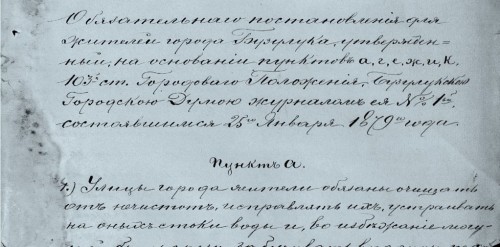 Обязательнаго постановленія для
жителей города Бузулука, утвержден-
ный, на основаніи пунктовъ а, г, е, ж, и, К.
103й ст. Городоваго Положенія, Бузулукской
Городскою Думою журналомъ ея № 1й,
состоявшимся 25го Января 1879го года.
Пунктъ А.
1.) Улицы города жители обязаны очищать
отъ нечистотъ, исправлять ихъ, устраивать
на оныхъ стоки воды и, во избѣжаніе могу-